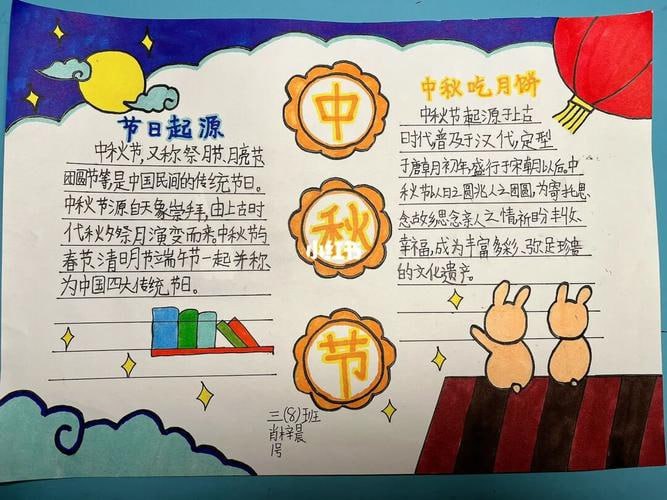 节日起源
中秋节,又称祭月节、月亮节
团圆节等,是中国民间的传统节日。
中秋节源自天象崇拜,由上古时
代秋夕祭月演变而来。中秋节与
春节、清明节、端午节一起并称
为中国四大传统节日。
中
秋
节
小红书
中秋吃月饼
中秋节起源于上古
时代,普及于汉代,定型
于唐朝初年,盛行于宋朝以后。中
秋节以月之圆兆人之团圆,为寄托思
念故乡,思念亲人之情,祈盼丰收、
幸福,成为丰富多彩、弥足珍贵
的文化遗产。
三(8)班
肖梓晨
1号